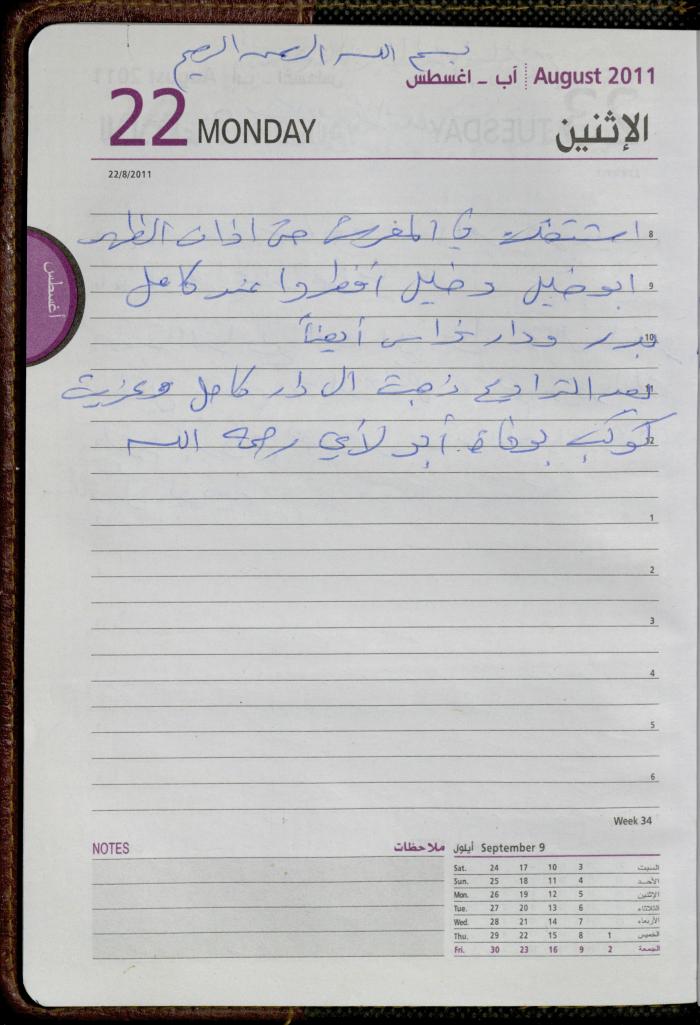 بسم الله الرحمن الرحيم
August 2011 آب - اغسطس
22 MONDAY الإثنين
22/8/2011
أغسطس
8 اشتغلت في المغرس حتى اذان الظهر
9 ابو خليل وخليل أفطروا عند كامل
10 بدر ودار أيضاً
11 بعد التراويح ذهبت الى دار كامل وعزيت
12 كوكب بوفاة أبو لأي رحمه الله
1
2
3
4
5
6
Week 34
NOTES ملاحظات
أيلول September 9
Sat. 24 17 10 3 السبت
Sun. 25 18 11 4 الأحد
Mon. 26 19 12 5 الإثنين
Tue. 27 20 13 6 الثلاثاء
Wed. 28 21 14 7 الأربعاء
Thu. 29 22 15 8 1 الخميس
Fri. 30 23 16 9 2 الجمعة